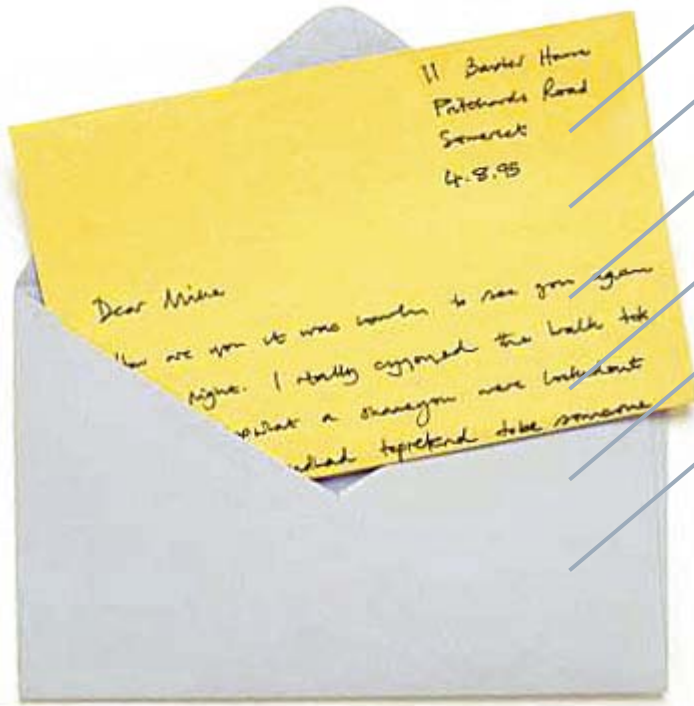 11 Baxter House
Pritchards Road
Somerset
4.8.95
Dear Mike
How are you it was to see you again
night. I really enjoyed the walk
what a shame you were lockedout
had topretend tobe someone